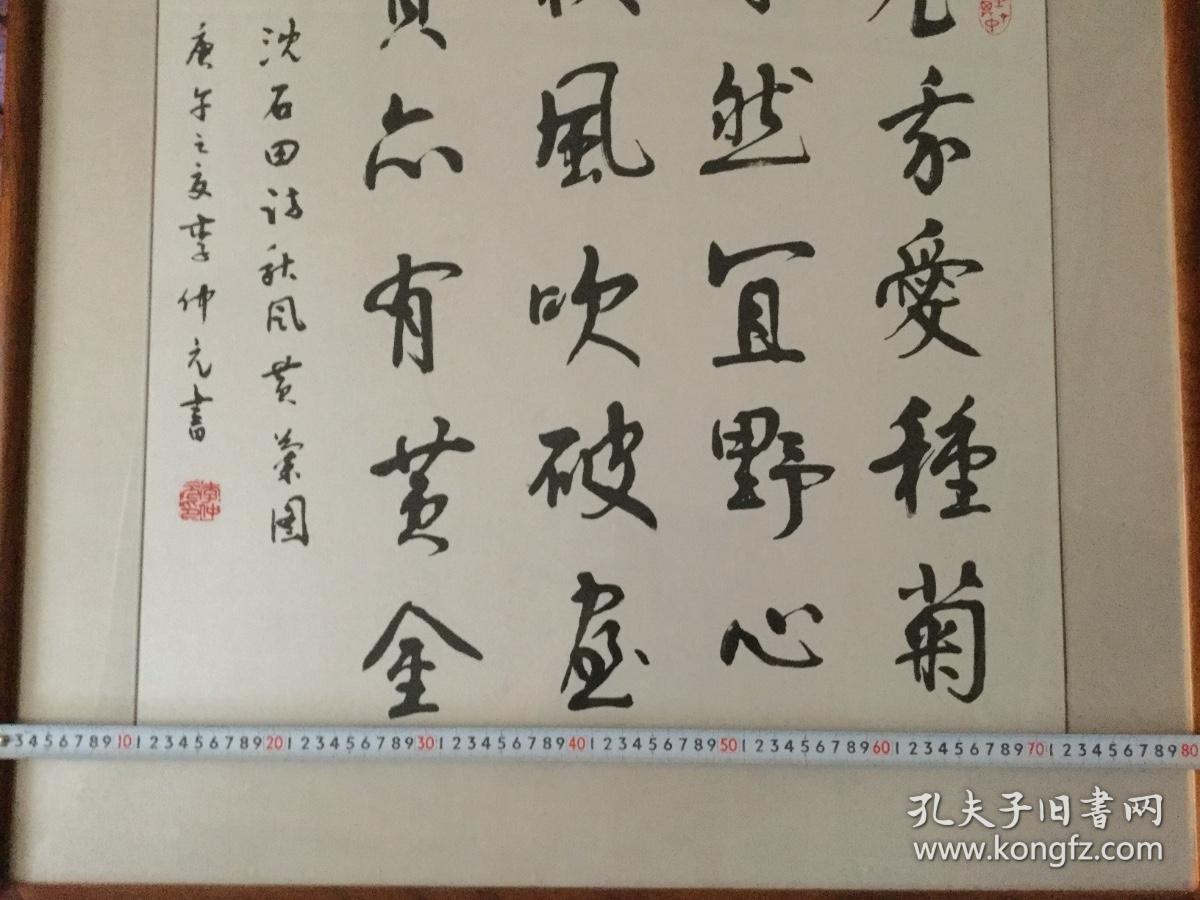 我愛種菊
然宜野心
風吹破屋
亦有黄金
沈石田诗秋风黄菊图
庚午之夏李仲元書
3 4 5 6 7 8 9 10 1 2 3 4 5 6 7 8 9 20 1 2 3 4 5 6 7 8 9 30 1 2 3 4 5 6 7 8 9 40 1 2 3 4 5 6 7 8 9 50 1 2 3 4 5 6 7 8 9 60 1 2 3 4 5 6 7 8 9 70 1 2 3 4 5 6 7 8 9 80
孔夫子旧書网
www.kongfz.com